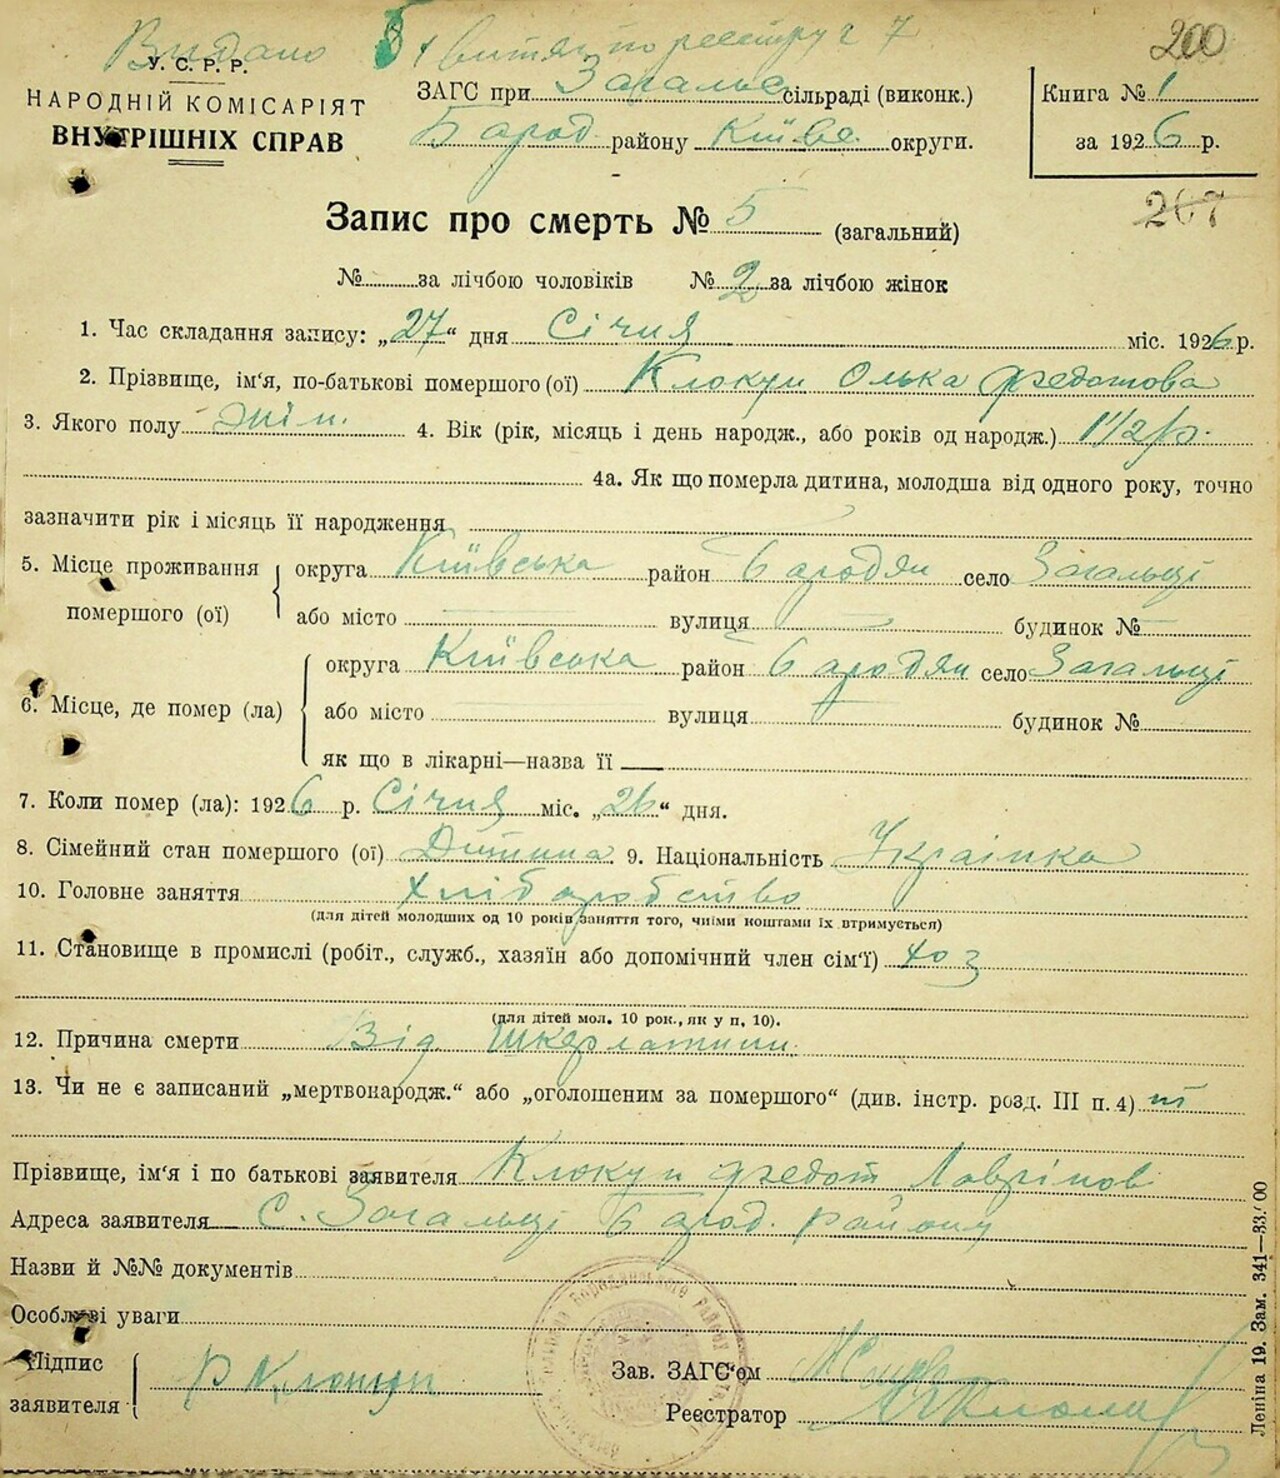 Видано витяг по реєстру 2 7
200
У. С. Р. Р.
НАРОДНІЙ КОМІСАРІЯТ
ВНУТРІШНІХ СПРАВ
ЗАГС при Загальс сільраді (виконк.)
Бород. району Київс. округи.
Книга № 1
за 1926 р.
207
Запис про смерть № 5 (загальний)
№ за лічбою чоловіків № 2 за лічбою жінок
1. Час складання запису: „27“ дня Січня міс. 1926 р.
2. Прізвище, ім'я, по-батькові помершого (ої) Клокун Олька Федотова
3. Якого полу жін. 4. Вік (рік, місяць і день народж., або років од народж.) 1 1/2 р.
4а. Як що померла дитина, молодша від одного року, точно
зазначити рік і місяць її народження
5. Місце проживання помершого (ої) округа Київська район Бородян село Загальці
або місто вулиця будинок №
6. Місце, де помер (ла) округа Київська район Бородян село Загальці
або місто вулиця будинок №
як що в лікарні—назва її
7. Коли помер (ла): 1926 р. Січня міс. „26“ дня.
8. Сімейний стан помершого (ої) Дитина 9. Національність Українка
10. Головне заняття хліборобство
(для дітей молодших од 10 років заняття того, чиїми коштами їх втримується)
11. Становище в промислі (робіт., служб., хазяїн або допомічний член сім'ї) хоз
(для дітей мол. 10 рок., як у п. 10).
12. Причина смерти Від шкерлатини
13. Чи не є записаний „мертвонародж.“ або „оголошеним за помершого“ (див. інстр. розд. III п. 4) ні
Прізвище, ім'я і по батькові заявителя Клокун Федот Лаврінов
Адреса заявителя с. Загальці Бород. району
Назви й №№ документів
Особливі уваги
Підпис заявителя Ф Клокун
Зав. ЗАГС'ом
Реєстратор
Леніна 19. Зам. 341—33.